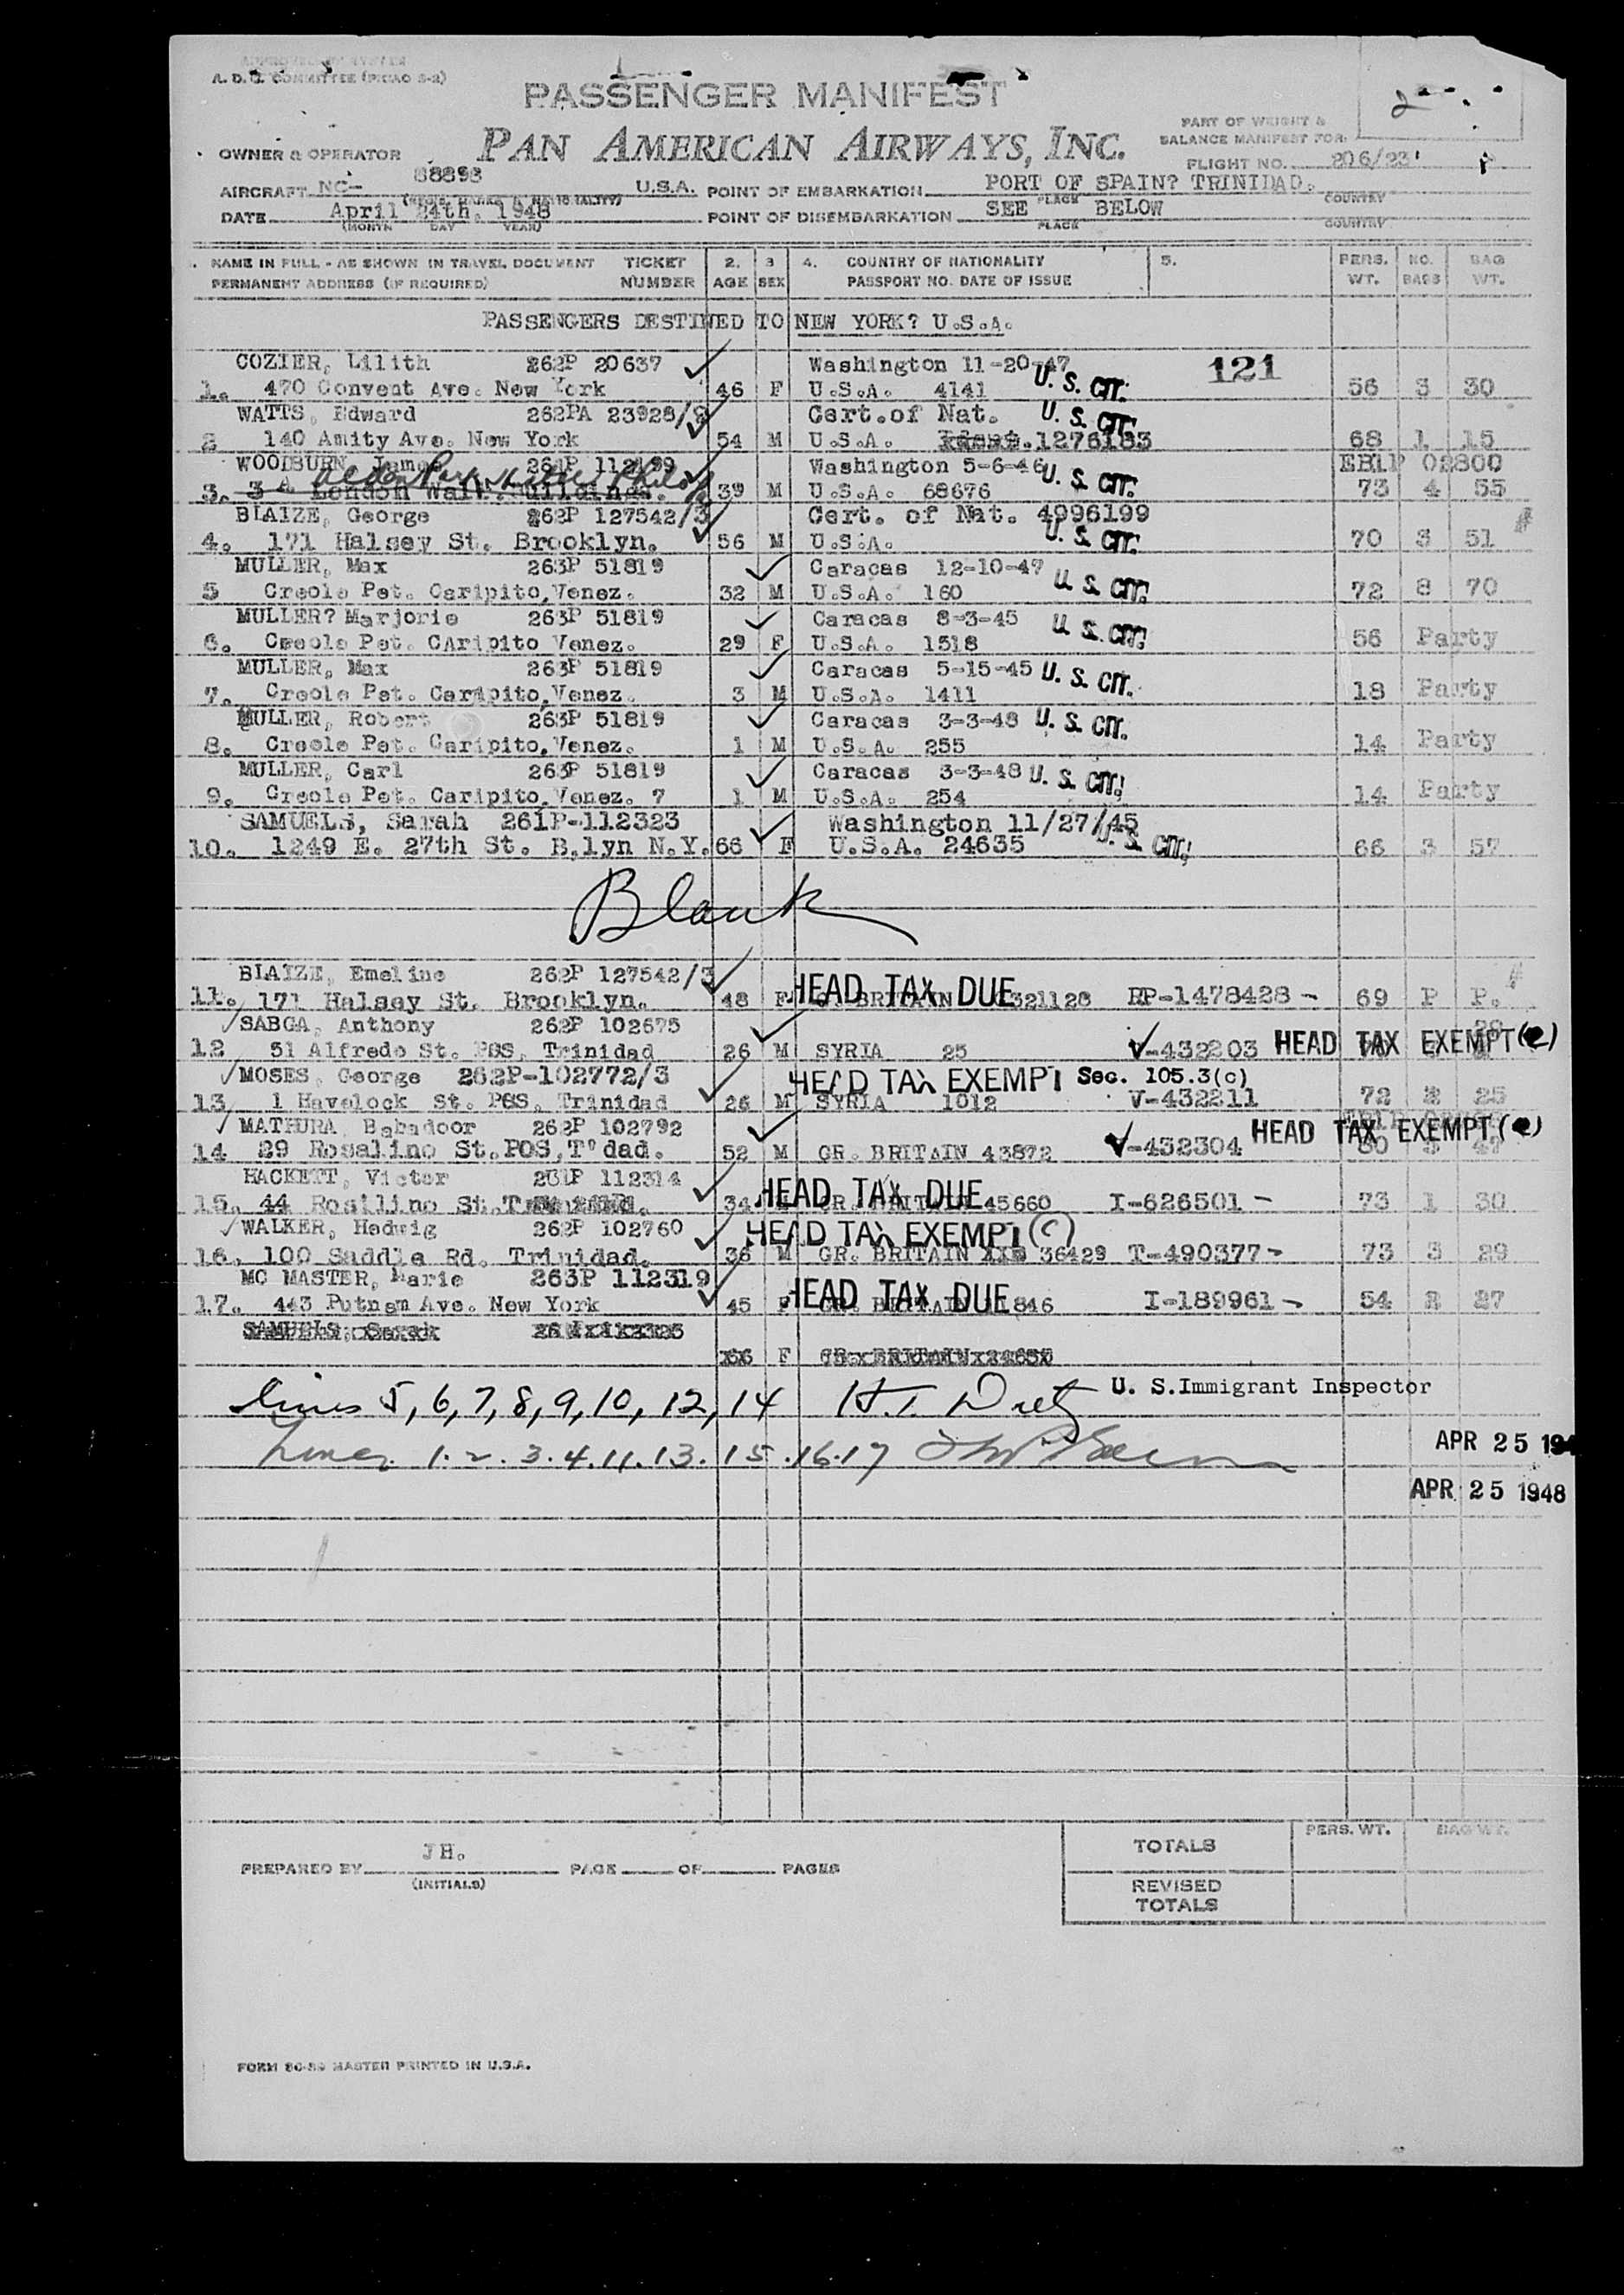 A. D. COMMITTEE (PICAO S-2)
PASSENGER MANIFEST
2
PAN AMERICAN AIRWAYS, INC.
PART OF WEIGHT &
BALANCE MANIFEST FOR:
OWNER & OPERATOR
FLIGHT NO. 206/23
AIRCRAFT NC- 88893 U.S.A. POINT OF EMBARKATION PORT OF SPAIN? TRINIDAD.
PLACE COUNTRY
DATE April 24th, 1948 POINT OF DISEMBARKATION SEE BELOW
(MONTH DAY YEAR) PLACE COUNTRY
1. NAME IN FULL - AS SHOWN IN TRAVEL DOCUMENT TICKET 2. 3 4. COUNTRY OF NATIONALITY 5. PERS. NO. BAG
PERMANENT ADDRESS (IF REQUIRED) NUMBER AGE SEX PASSPORT NO. DATE OF ISSUE WT. BAGS WT.
PASSENGERS DESTINED TO NEW YORK? U.S.A.
COZIER, Lilith 262P 20637 Washington 11-20-47 121
1. 470 Convent Ave. New York 46 F U.S.A. 4141 U. S. CIT. 56 3 30
WATTS, Edward 262PA 23928/9 Cert.of Nat. U. S. CIT.
2 140 Amity Ave. New York 54 M U.S.A. 1276183 68 1 15
WOODBURN, James 261P 112199 Washington 5-6-46 U. S. CIT. EBLP 02800
Alden Park Hotel Phila
3. 3 A London Wall. Buildings. 39 M U.S.A. 68676 73 4 55
BLAIZE, George 262P 127542/3 Cert. of Nat. 4996199
4. 171 Halsey St. Brooklyn. 56 M U.S.A. U. S. CIT. 70 3 51
MULLER, Max 263P 51819 Caracas 12-10-47
5 Creole Pet. Caripito, Venez. 32 M U.S.A. 160 U. S. CIT. 72 8 70
MULLER? Marjorie 263P 51819 Caracas 8-3-45 U. S. CIT.
6. Creole Pet. CAripito Venez. 29 F U.S.A. 1518 56 Party
MULLER, Max 263P 51819 Caracas 5-15-45 U. S. CIT.
7. Creole Pet. Caripito, Venez. 3 M U.S.A. 1411 18 Party
MULLER, Robert 263P 51819 Caracas 3-3-48 U. S. CIT.
8. Creole Pet. Caripito, Venez. 1 M U.S.A. 255 14 Party
MULLER, Carl 263P 51819 Caracas 3-3-48 U. S. CIT.
9. Creole Pet. Caripito, Venez. 7 1 M U.S.A. 254 14 Party
SAMUELS, Sarah 261P-112323 Washington 11/27/45
10. 1249 E. 27th St. B,lyn N.Y. 66 F U.S.A. 24635 U. S. CIT. 66 3 57
Blank
BLAIZE, Emeline 262P 127542/3 HEAD TAX DUE
11. 171 Halsey St. Brooklyn. 48 F GR. BRITAIN 321128 RP-1478428 - 69 P P.
SABGA, Anthony 262P 102675
12 51 Alfredo St. POS, Trinidad 26 M SYRIA 25 V-432203 HEAD TAX EXEMPT (e)
MOSES, George 262P-102772/3 HEAD TAX EXEMPT Sec. 105.3(c)
13 1 Havelock St. POS, Trinidad 26 M SYRIA 1012 V-432211 72 2 25
MATHURA, Bahadoor 262P 102792
14 29 Rosalino St.POS,T'dad. 52 M GR. BRITAIN 43872 V-432304 HEAD TAX EXEMPT (e) 80 3 47
HACKETT, Victor 261P 112314 HEAD TAX DUE
15. 44 Rosilino St. 34 GR. BRITAIN 45660 I-626501 - 73 1 30
WALKER, Hedwig 262P 102760 HEAD TAX EXEMPT (c)
16. 100 Saddle Rd. Trinidad. 36 M GR. BRITAIN 36429 T-490377 - 73 3 29
MC MASTER, Marie 263P 112319 HEAD TAX DUE
17. 443 Putnam Ave. New York 45 F GR. BRITAIN 1846 I-189961 - 54 2 27
SAMUELS, Sarah
66 F GR. BRITAIN
Lines 5, 6, 7, 8, 9, 10, 12, 14 U. S.Immigrant Inspector
Lines 1. 2. 3. 4. 11. 13. 15. 16. 17 APR 25 194
APR 25 1948
TOTALS PERS. WT. BAG WT.
JH.
PREPARED BY PAGE OF PAGES
(INITIALS)
REVISED
TOTALS
FORM 80-89 MASTER PRINTED IN U.S.A.